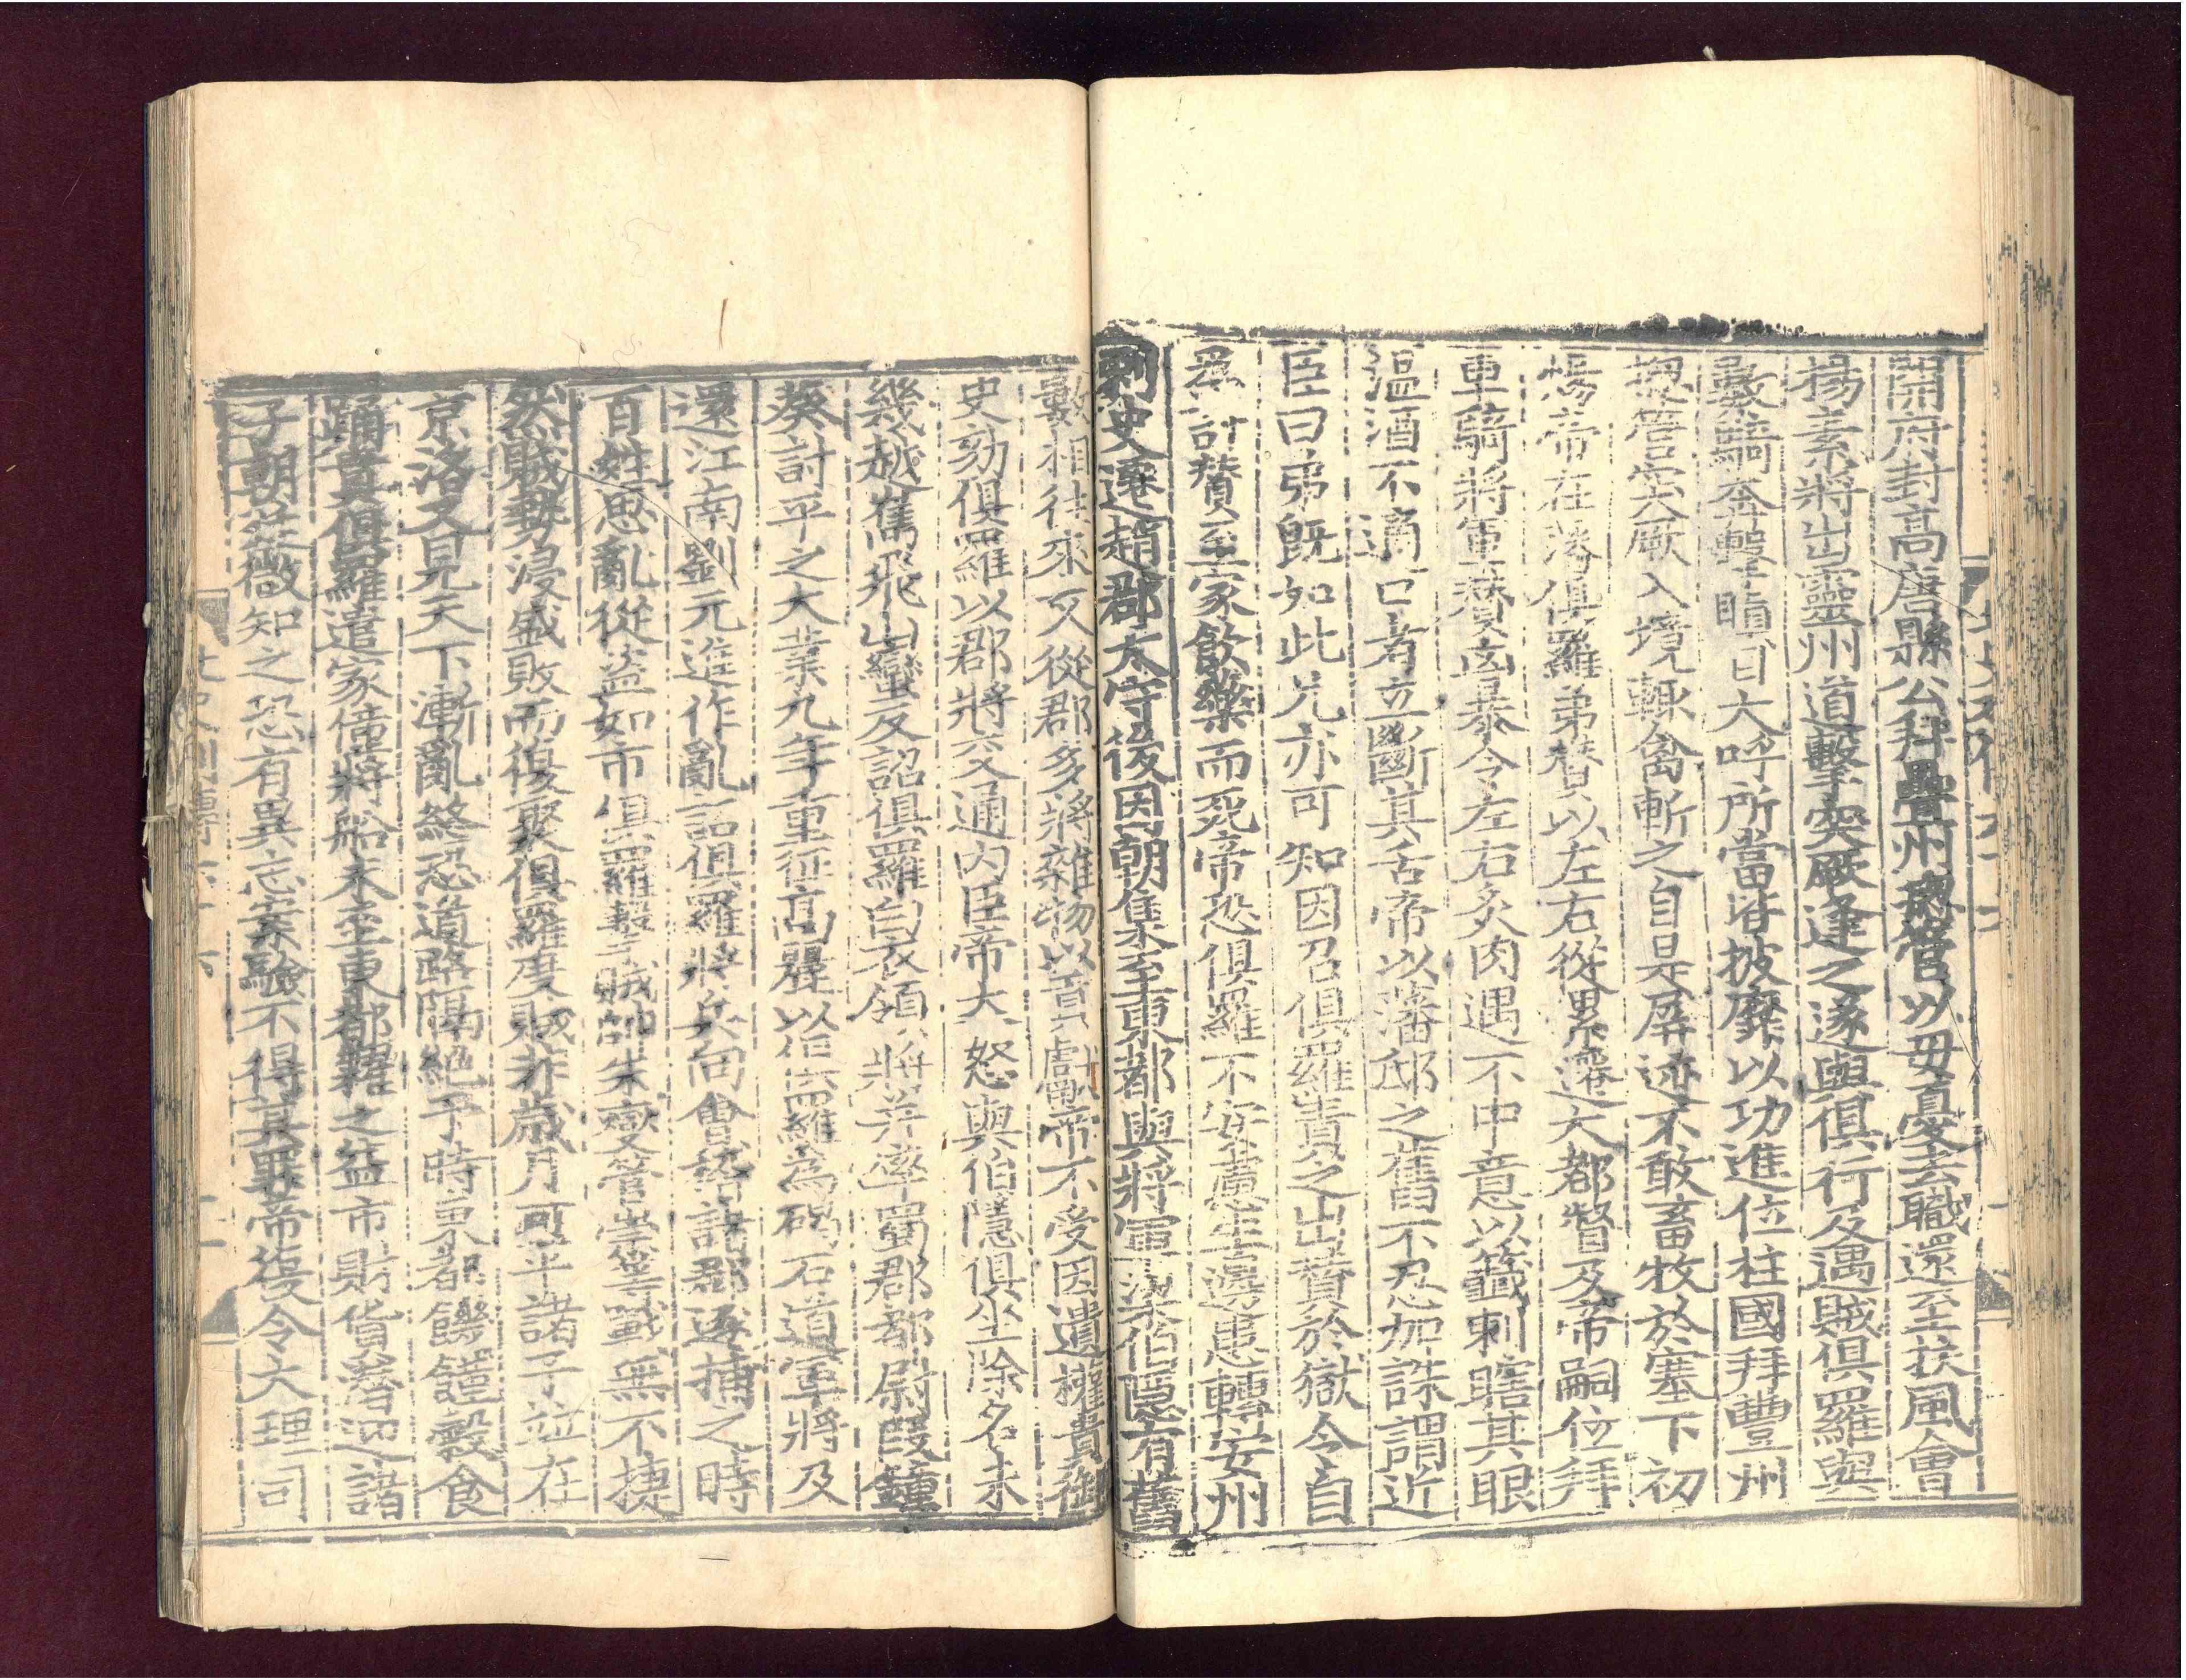 開府封高唐縣公拜疊州揔管以母憂去職還至扶風會
揚素將出靈州道擊突厥逢之遂與俱行及遇賊俱羅與
數騎奔擊瞋目大呼所當皆披靡以功進位柱國拜豐州
揔管突厥入境輒禽斬之自是屏迹不敢畜牧於塞下初
煬帝在藩俱羅弟贊以左右從累遷大都督及帝嗣位拜
車騎將軍贊凶暴令左右炙肉遇不中意以籤刺瞎其眼
溫酒不適口者立斷其舌帝以藩邸之舊不忍加誅謂近
臣曰弟旣如此兄亦可知因召俱羅責之出贊於獄令自
爲計贊至家飮藥而死帝恐俱羅不安慮生邊患轉安州
刺史遷趙郡太守後因朝集至東都與將軍梁伯隱有舊
數相往來又從郡多將雜物以貢獻帝不受因遺權貴御
史劾俱羅以郡將交通內臣帝大怒與伯隱俱坐除名未
幾越嶲飛山蠻反詔俱羅白衣領將并率蜀郡都尉段鐘
葵討平之大業九年重征高麗以俱羅爲碣石道軍將及
還江南劉元進作亂詔俱羅將兵向會稽諸郡逐捕之時
百姓思亂從盜如市俱羅擊賊帥朱燮管崇等戰無不捷
然賊勢浸盛敗而復聚俱羅度賊非歲月可平諸子並在
京洛又見天下漸亂終恐道路隔絕于時東都饑饉穀食
踊貴俱羅遣家僮將船米至東都糶之益市財貨潛迎諸
子朝廷微知之恐有異志案驗不得其罪帝復令大理司
北史列傳六十六